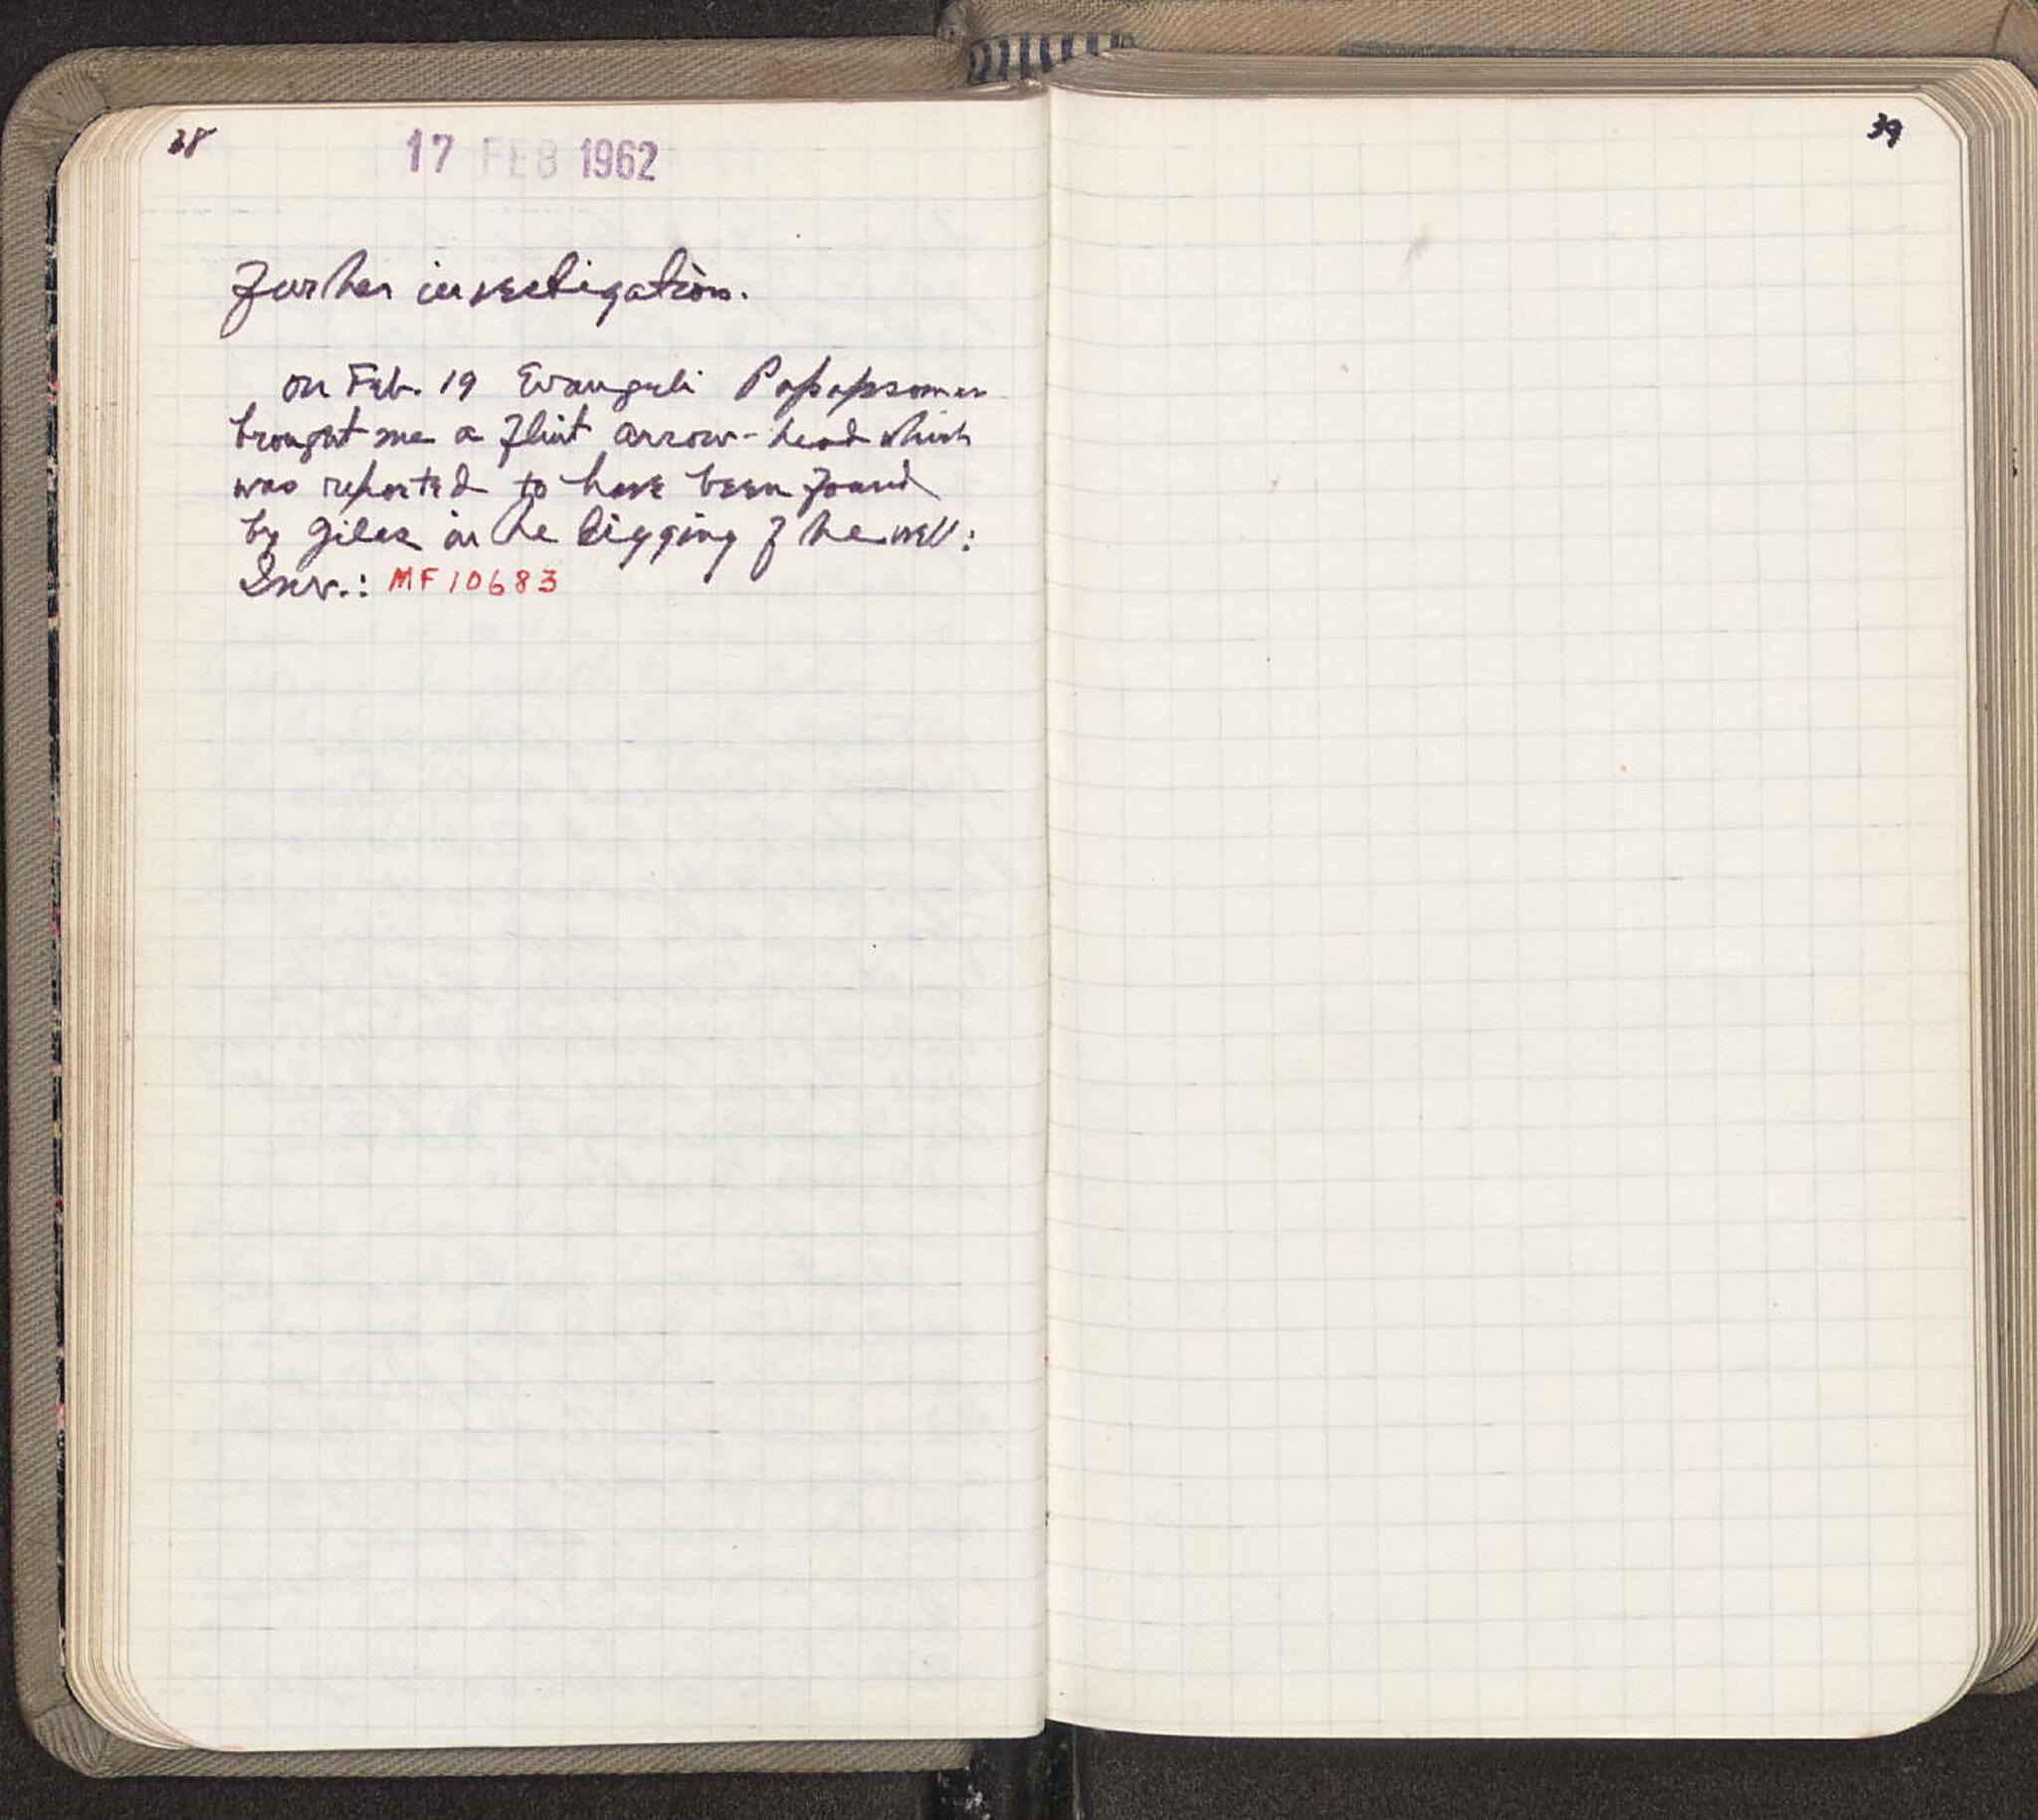 38
17 FEB 1962
Further investigation.
on Feb. 19 Evangeli Papapsoma
brought me a flint arrow-head which
was reported to have been found
by Giles in the digging of the well:
Inv.: MF 10683
39